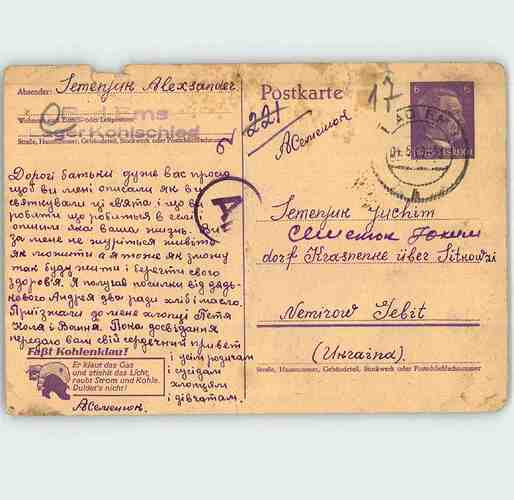 Absender: Semenjuk Alexsander
Postkarte
6
17
221
Lager Kohlscheid
Straße, Hausnummer, Gebäudeteil, Stockwerk oder Postschließfachnummer
АСеменюк
Дорогі батьки дуже вас прошу
щоб ви мені описали як ви
святкували ці свята і що ви
робили що робиться в селі
опишіть яка ваша жизнь. Ви
за мене не журіться живіть
як можити а я тоже як зможу
так буду жити і берегти свого
здоров'я. Я получив посилки від дядь-
кового Андрея два рази хліб і масло.
Приїзжали до мене хлопці Петя
Коля і Ваня. Пока досвідання
передаю вам свій сердечний привет
і усім родичам
і сусідам
хлопцям
і дівчатам.
АСеменюк.
Faßt Kohlenklau!
Er klaut das Gas
und stiehlt das Licht,
raubt Strom und Kohle.
Duldet's nicht!
Semenjuk Juchim
Семенюк Юхим
dorf Krasnenke über Sitkowzi
Nemirow Gebit
(Ukraina).
Straße, Hausnummer, Gebäudeteil, Stockwerk oder Postschließfachnummer